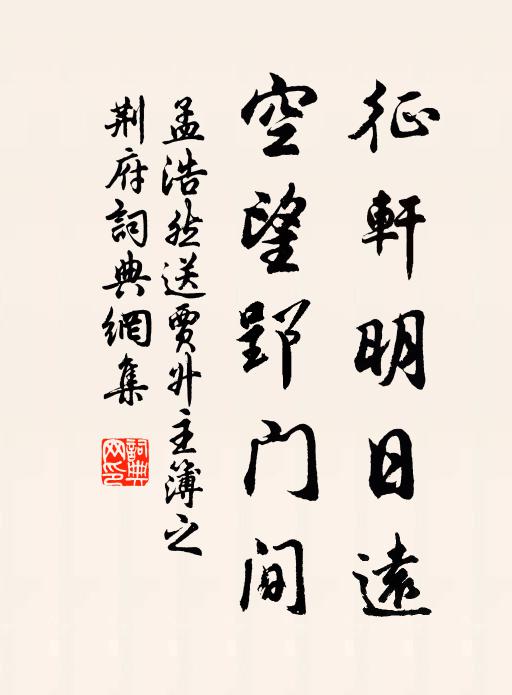 征軒明日遠
空望郢门間
孟浩然送賈升主簿之
荆府詞典網集
詞典网印